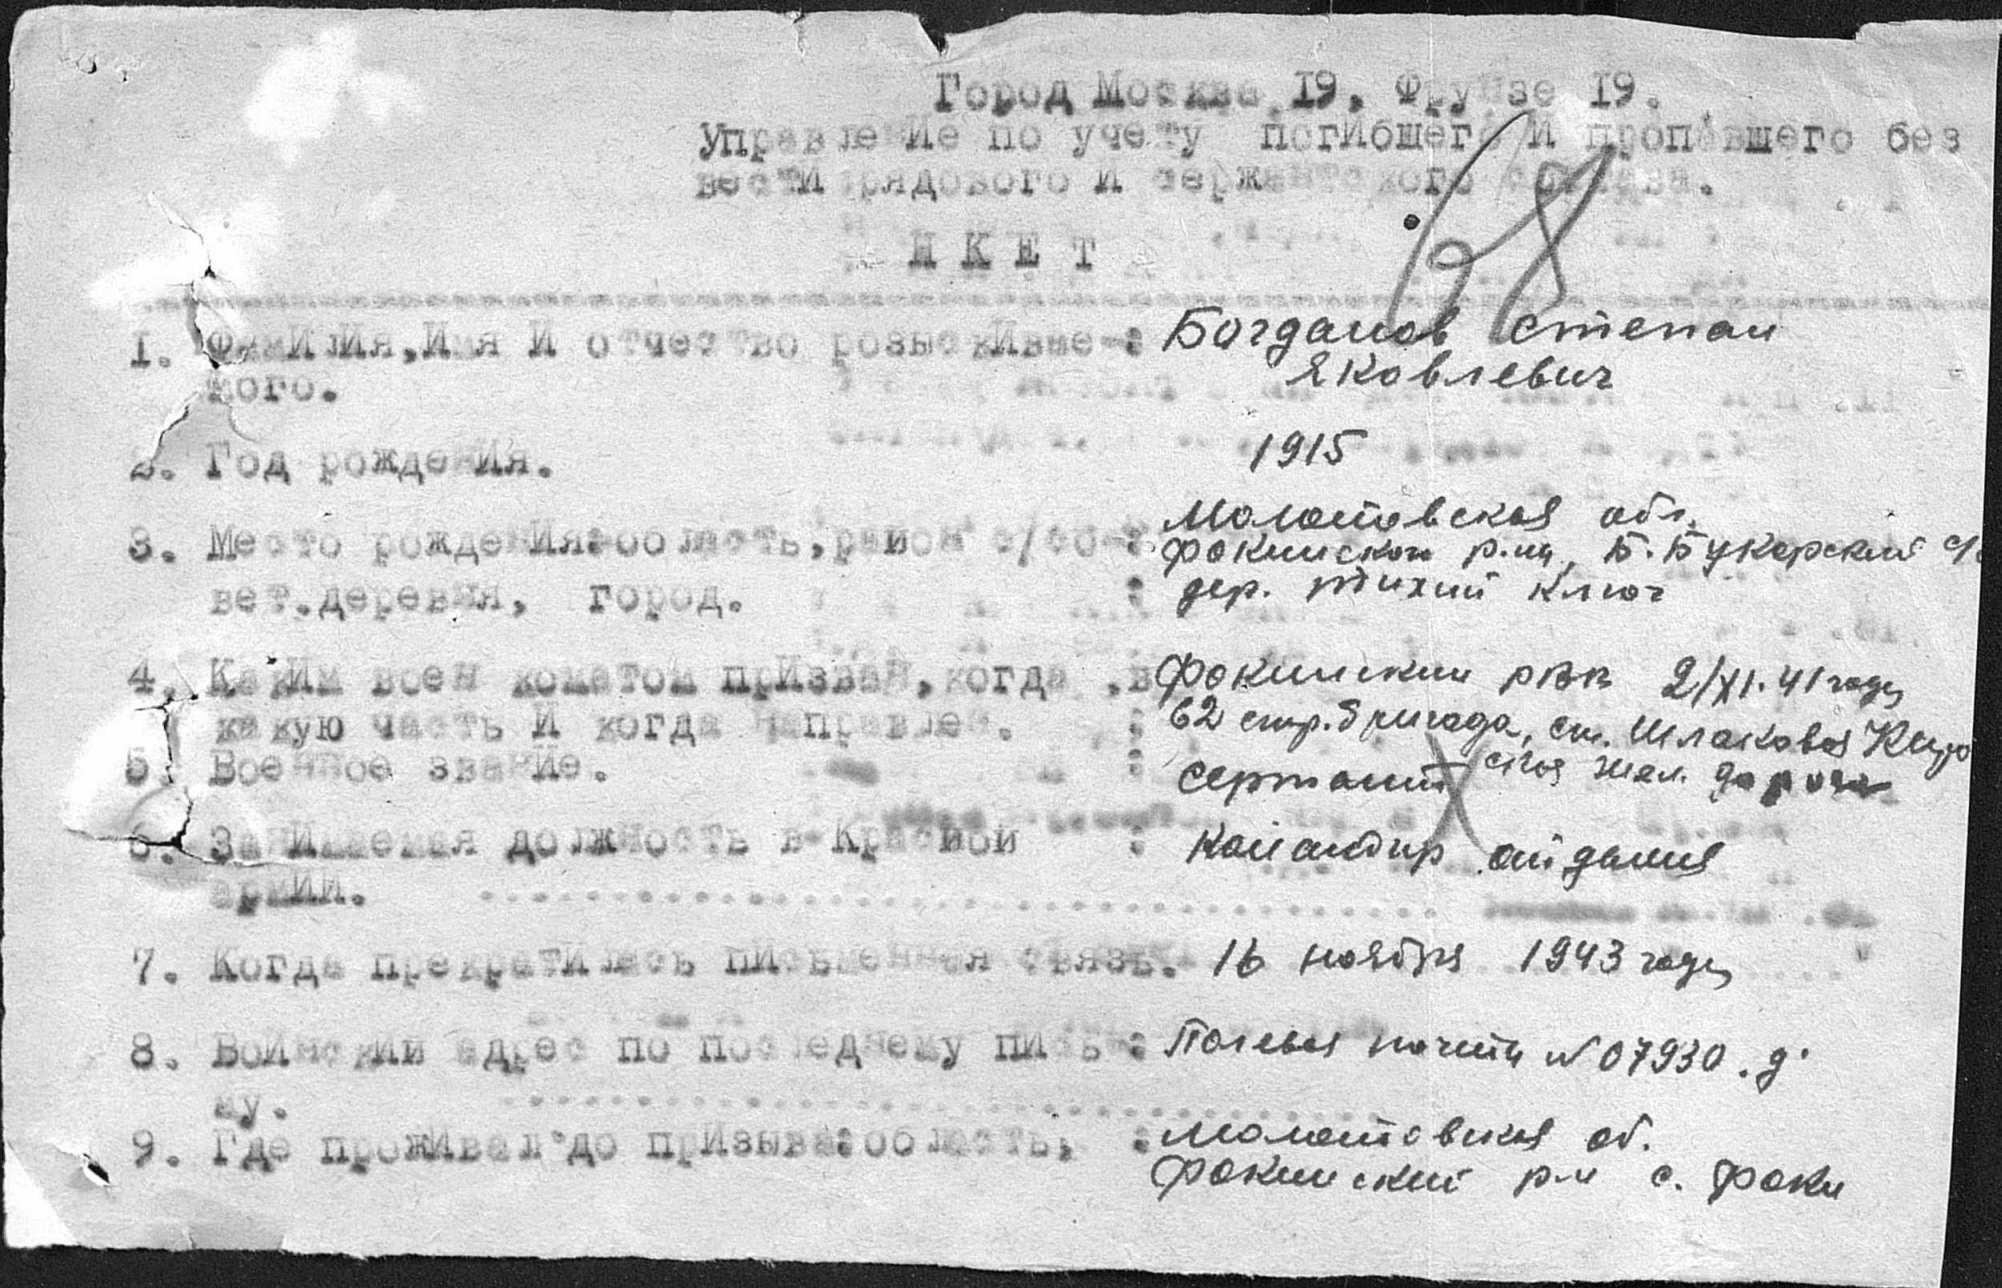 Город Москва 19, Фрунзе 19.
Управление по учету погибшего и пропавшего без
вести рядового и сержантского состава.
АНКЕТ
1. Фамилия, Имя и отчество розыскивае- :
мого.
Богданов Степан
Яковлевич
2. Год рождения.
1915
3. Место рождения: область, район с/со- :
вет. деревня, город. :
Молотовская обл.
Фокинском р-на, Б. Букорский с/
дер. Тихий Ключ
4. Каким воен коматом призван, когда , в
какую часть и когда направлен. :
Фокинским РВК 2/XI.41 году
62 стр. бригада, ст. Шлаковая
жел. дорога
5. Военное звание. :
сержант
6. Занимаемая должность в Красной :
армии.
Командир отдания
7. Когда прекратилась письменная связь.
16 ноября 1943 году
8. Воинский адрес по последнему пись- :
му.
Полевая почта № 07930. д
9. Где проживал до призыва: область, :
Молотовская об.
Фокинский р-н с. Фоки